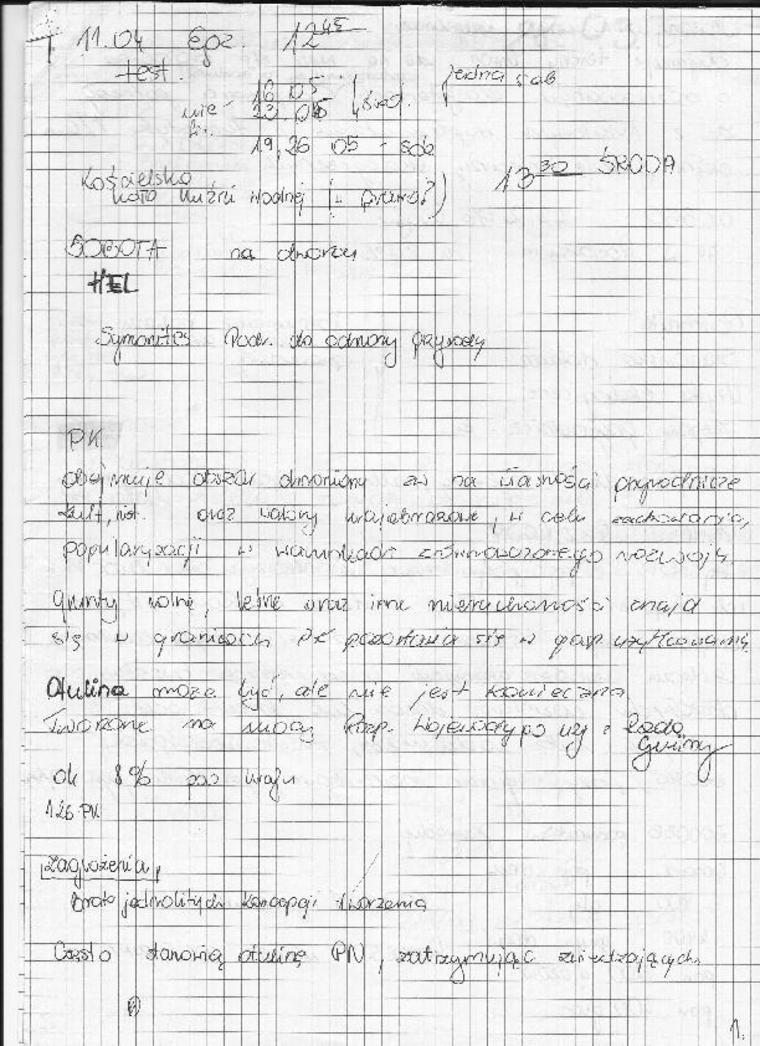 11.04 Egz. 12 45
test.
16.05 śrd. jedna sob
nie- 23.05
19,26 05 - sob
13 30 ŚRODA
Kościelsko
koło kuźni wodnej (w prawo?)
SOBOTA na dworcu
HEL
Symonides Podr. do ochrony przyrody
PK
obejmuje obszar chroniony ze wz na własności przyrodnicze
kult, hist. oraz walory krajobrazowe, w celu zachowania,
popularyzacji w warunkach zrównoważonego rozwoju.
Grunty rolne, leśne oraz inne nieruchomości znajd
się w granicach PK pozostania się w gosp użytkowaniu.
Otulina może być, ale nie jest konieczna
Tworzone na mocy Rozp. Wojewody po uzg z Radą
Gminy
ok 8% pow kraju
126 PK
Zagrożenia
Brak jednolitych koncepcji tworzenia
Często stanowią otulinę PN, zatrzymując zwiedzających.
1.